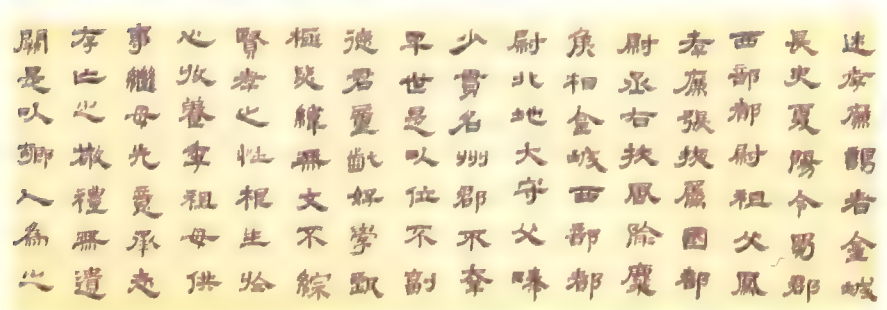 述孝廉謁者金城
長史夏陽令蜀郡
西部都尉祖父鳳
孝廉張掖屬國都
尉丞右扶風隃麋
侯相金城西部都
尉北地大守父琫
少貫名州郡不幸
早世是以位不副
德君童齔好學甄
極毖緯無文不綜
賢孝之性根生於
心收養季祖母供
事繼母先意承志
存亡之敬禮無遺
闕是以鄉人為之